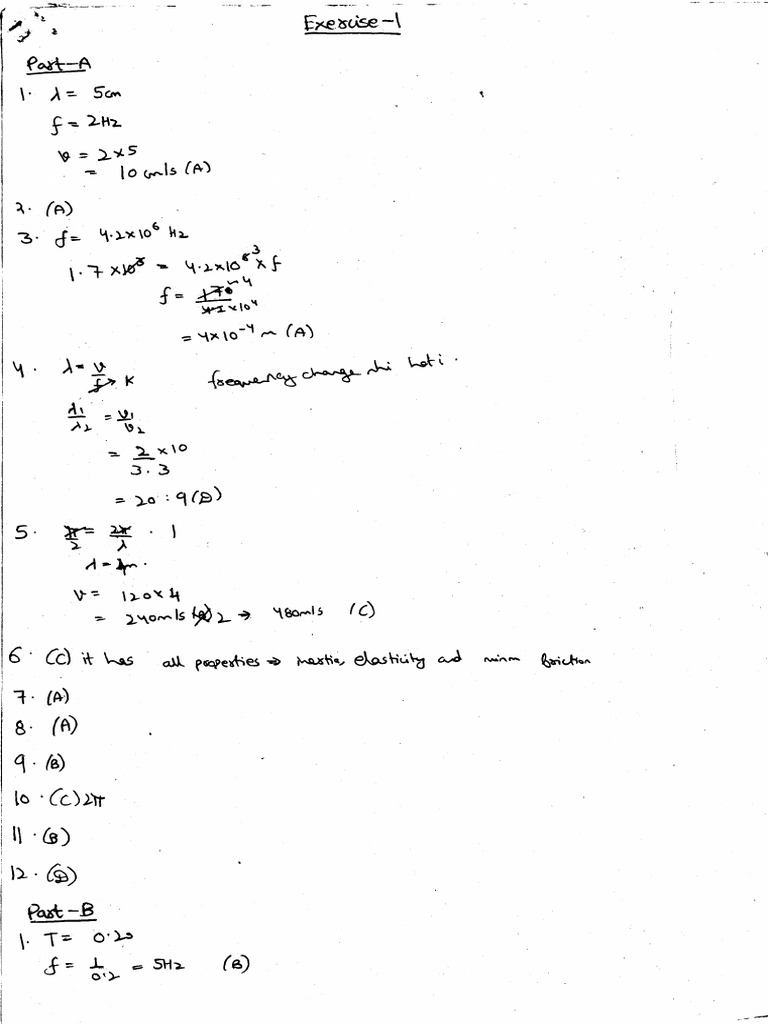 Exercise-1
Part-A
1. λ = 5cm
f = 2Hz
v = 2×5
= 10 cm/s (A)
2. (A)
3. f = 4.2×10⁶ Hz
1.7 ×10³ = 4.2×10⁶ ³ × f
f =
= 4×10⁻⁴ m (A)
4. λ = v/f → K frequency change nhi hoti.
λ1/λ2 = v1/v2
= 2/3.3 ×10
= 20 : 9 (D)
5. π/2 = 2π/λ · 1
λ = 4m.
v = 120×4
= 240m/s 2 → 480m/s (C)
6. (C) it has all properties → inertia, elasticity and minm friction
7. (A)
8. (A)
9. (B)
10. (C) 2π
11. (B)
12. (D)
Part-B
1. T = 0.2s
f = 1/0.2 = 5Hz (B)